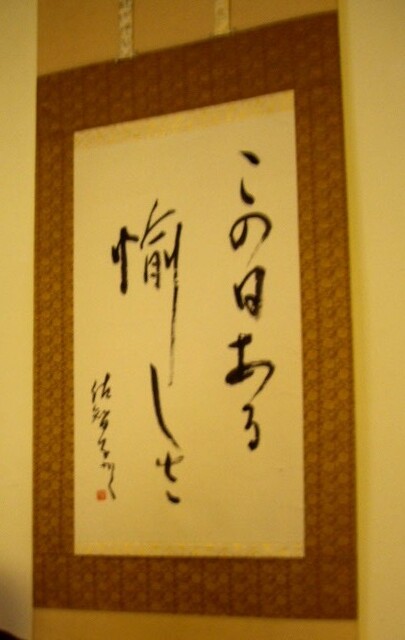 この日ある
愉しさ